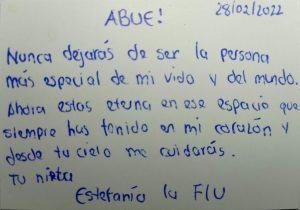 28/02/2022
ABUE!
Nunca dejarás de ser la persona
más especial de mi vida y del mundo.
Ahora estas eterna en ese espacio que
siempre has tenido en mi corazón y
desde tu cielo me cuidarás.
Tu nieta
Estefanía la FIU